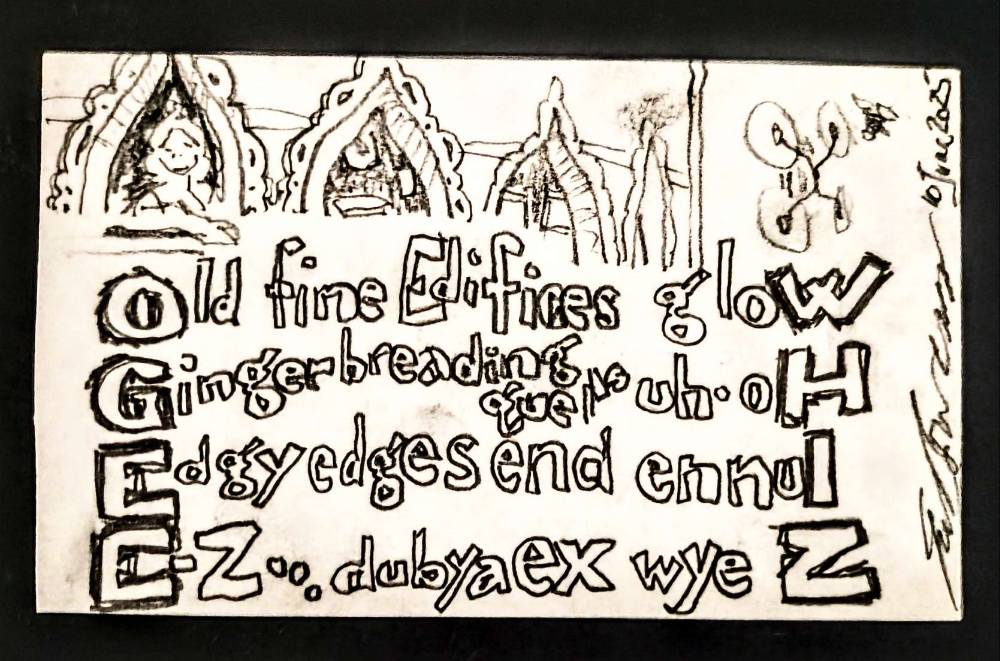 Old fine Edifices gloW
Gingerbreading quells uh·oH
Edgy edges end ennuI
E-Z... dubya ex wye Z
10 June 2025